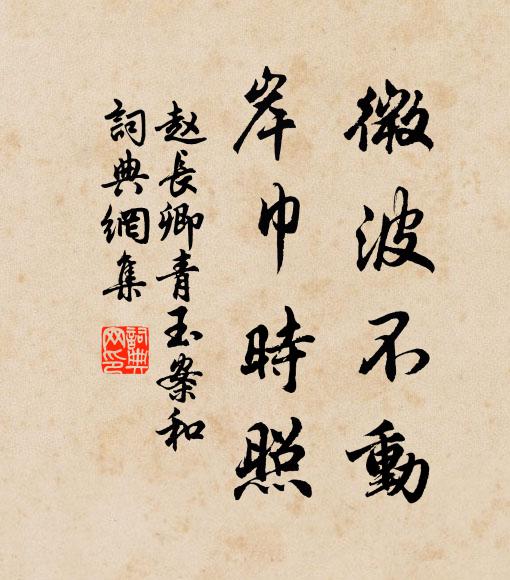 微波不動
岸巾時照
赵長卿青玉案和
詞典網集
詞典网印